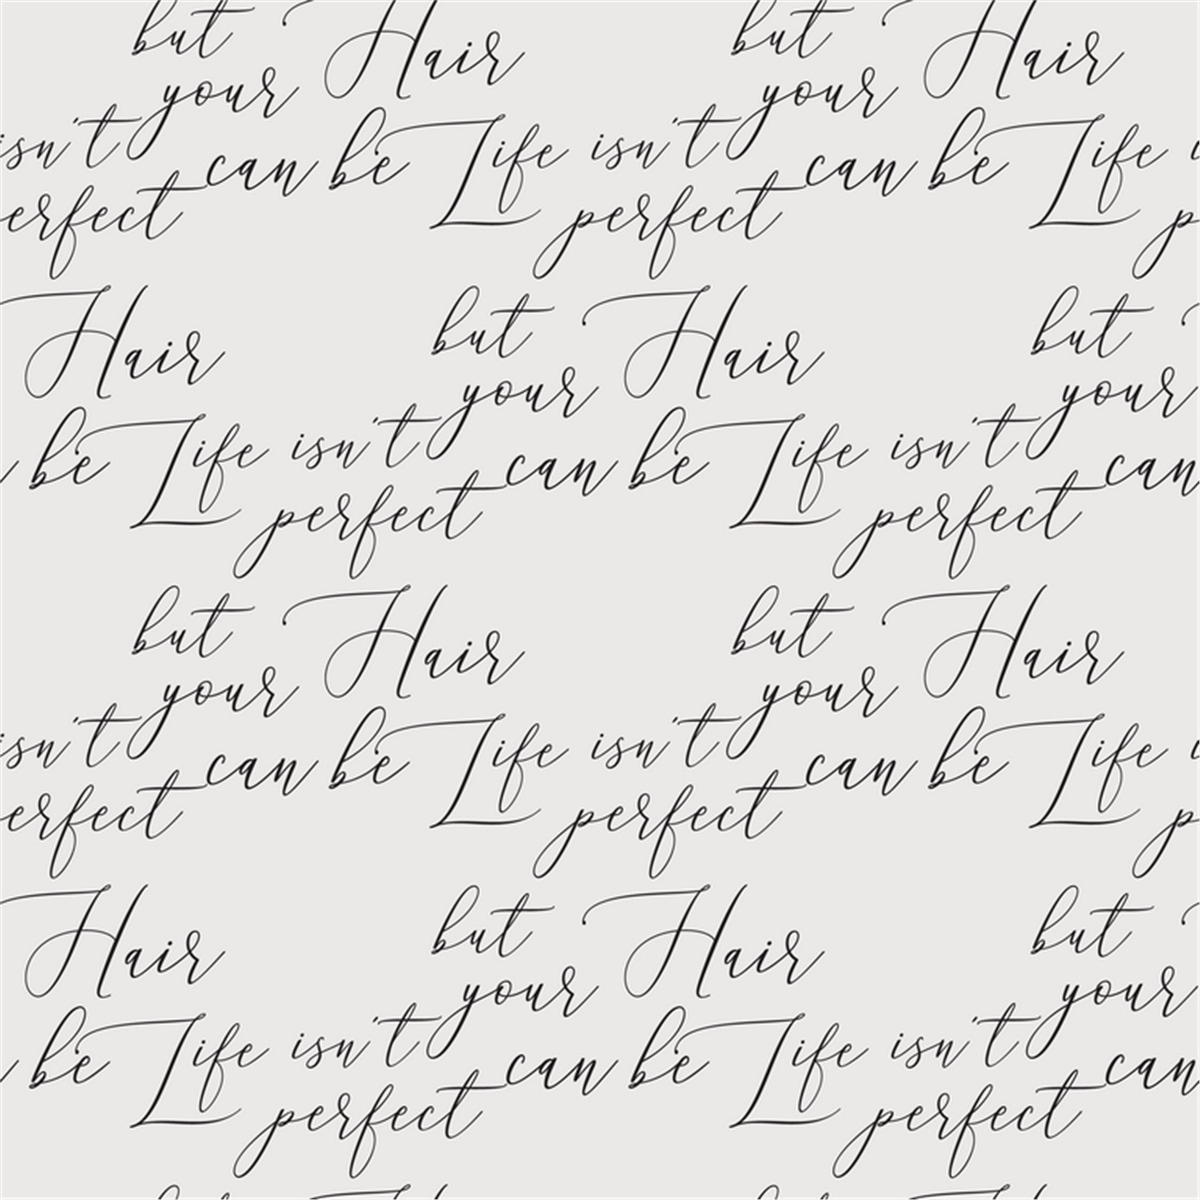 but Hair but Hair
your your
isn't can be Life isn't can be Life
perfect perfect
Hair but Hair but
your your
be Life isn't can be Life isn't can
perfect perfect
but Hair but Hair
your your
isn't can be Life isn't can be Life
perfect perfect
Hair but Hair but
your your
be Life isn't can be Life isn't can
perfect perfect